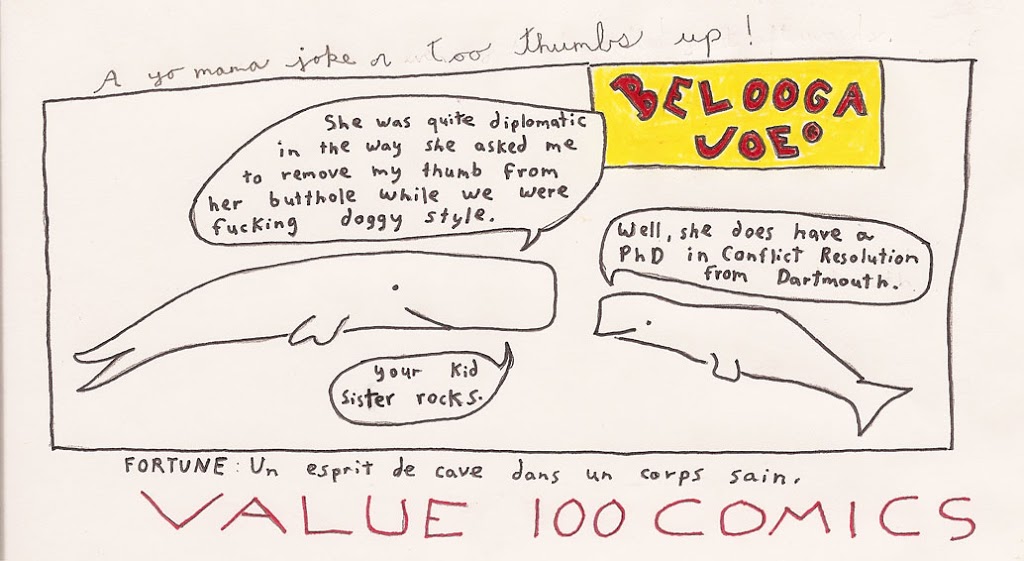 A yo mama joke r too thumbs up!
BELOOGA
JOE
She was quite diplomatic
in the way she asked me
to remove my thumb from
her butthole while we were
fucking doggy style.
Well, she does have a
PhD in Conflict Resolution
from Dartmouth.
your kid
sister rocks.
FORTUNE: Un esprit de cave dans un corps sain.
VALUE 100 COMICS